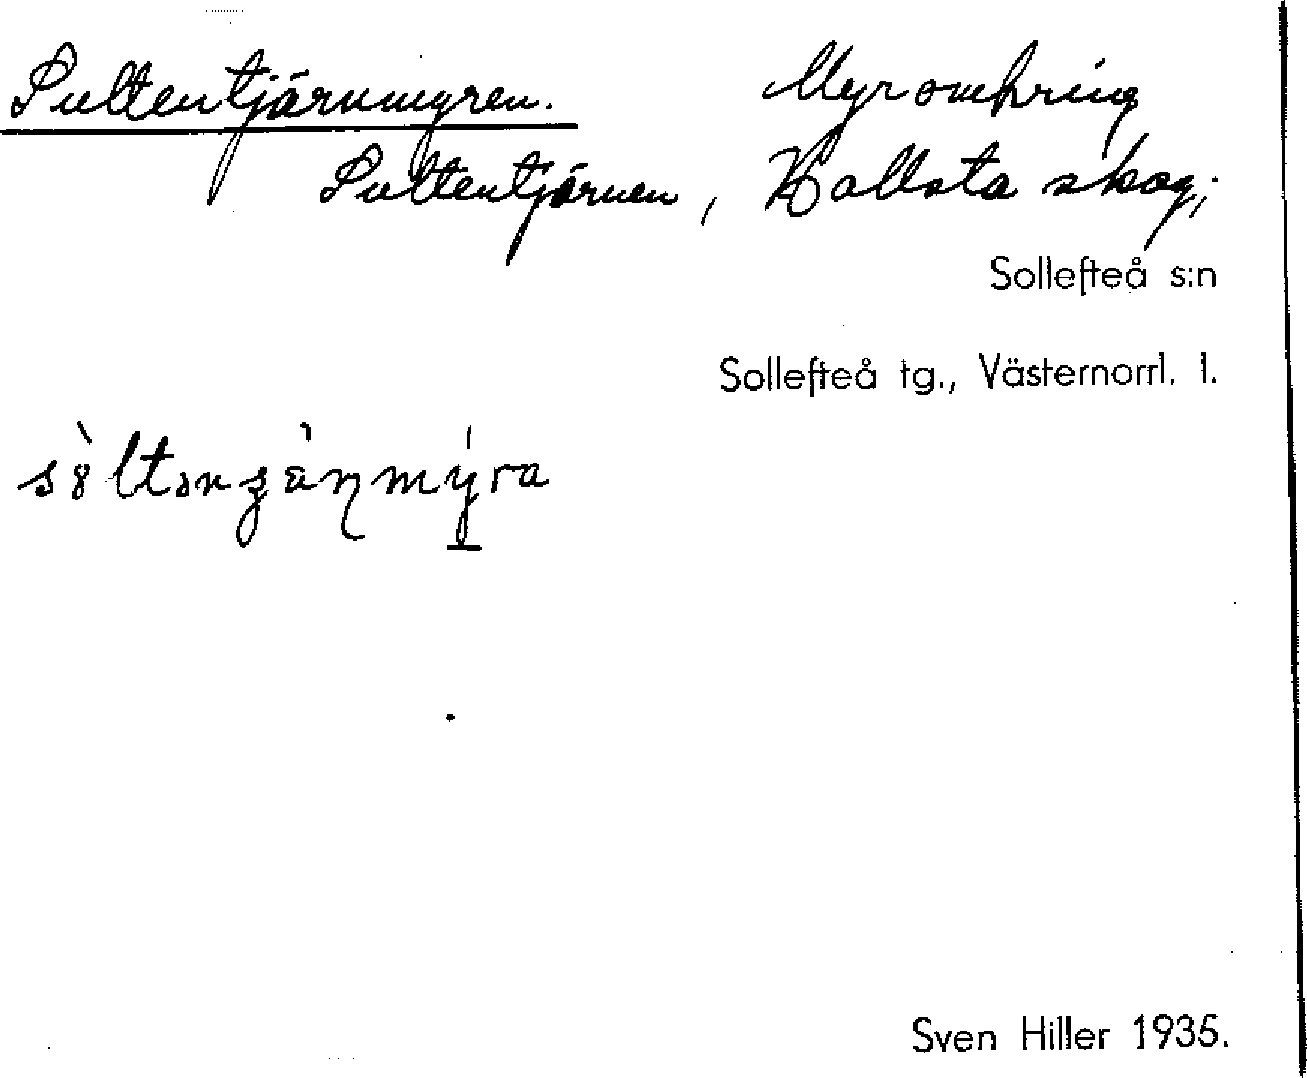 Sultentjärnmyren. Myr omkring
Sultentjärnen, Vallsta skog,
Sollefteå s:n
Sollefteå tg., Västernorrl. l.
Sven Hiller 1935.